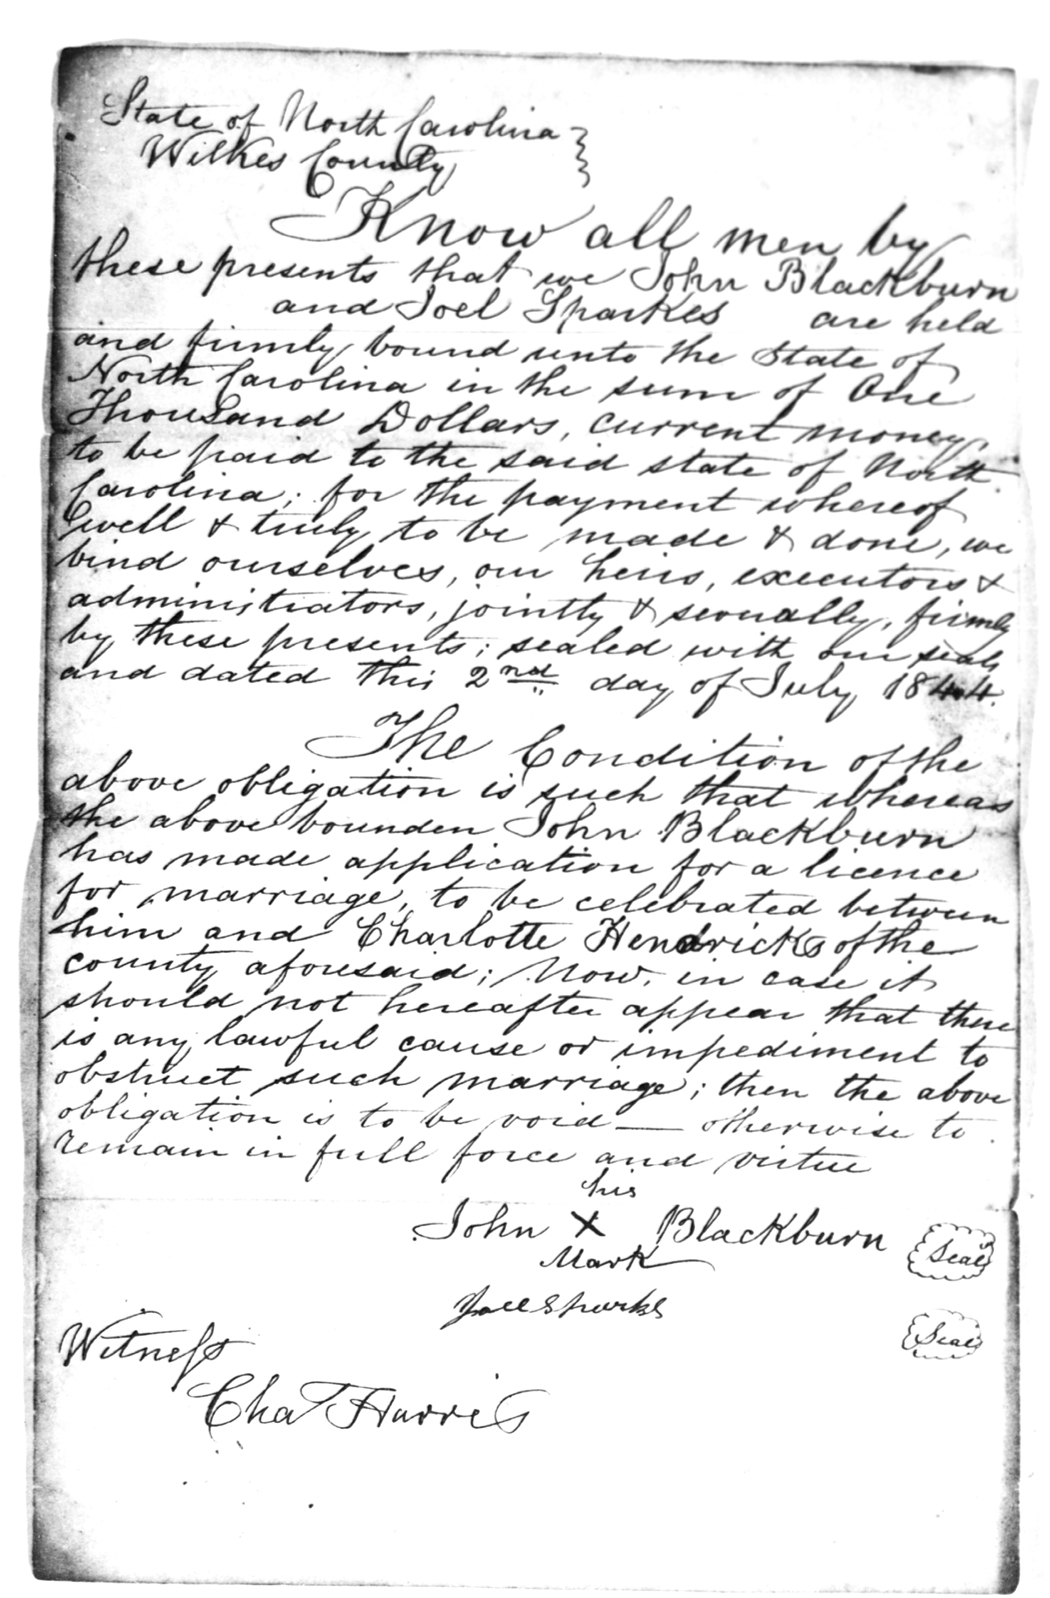 State of North Carolina }
Wilkes County
Know all men by
these presents that we John Blackburn
and Joel Sparkes are held
and firmly bound unto the State of
North Carolina in the sum of One
Thousand Dollars, current money,
to be paid to the said state of North
Carolina; for the payment whereof
well & truly to be made & done, we
bind ourselves, our heirs, executors &
administrators, jointly & severally, firmly
by these presents; sealed with our seals
and dated this 2nd day of July 1844.
The Condition of the
above obligation is such that whereas
the above bounden John Blackburn
has made application for a licence
for marriage, to be celebrated between
him and Charlotte Hendricks of the
county aforesaid; Now, in case it
should not hereafter appear that there
is any lawful cause or impediment to
obstruct such marriage; then the above
obligation is to be void — otherwise to
remain in full force and virtue
his
John X Blackburn Seal
Mark
Joel Sparks Seal
Witness
Chaˢ Harris